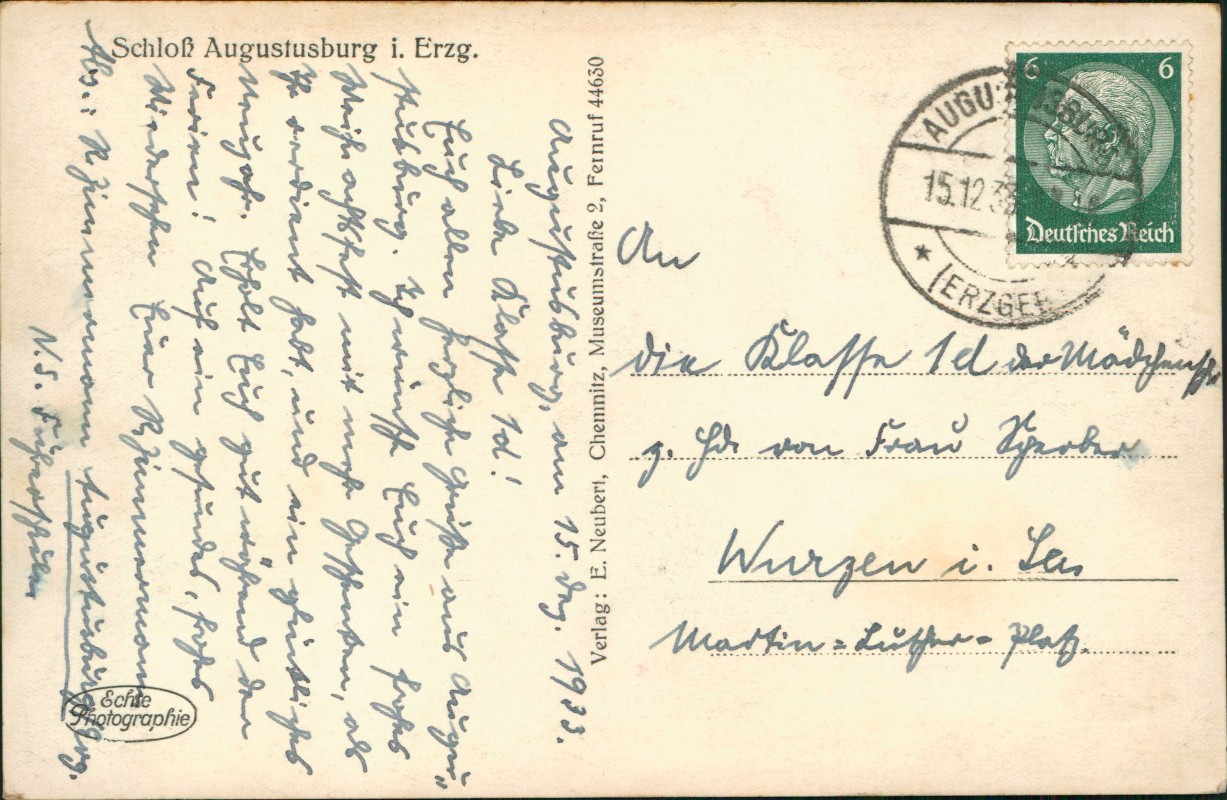 Schloß Augustusburg i. Erzg.
Augustusburg, am 15. Dez. 1933.
Liebe Klasse 1d!
Euch allen herzliche Grüße aus Augu-
stusburg. Ich wünsche Euch ein frohes
Weihnachtsfest mit mehr Geschenken, als
Ihr verdient habt, und ein glückliches
Neujahr. Erholt Euch gut während der
Ferien! Auf ein gesundes, frohes
Wiedersehen Euer R. Zimmermann
Abs.: R. Zimmermann Augustusburg
N.S. Führerschule
Verlag: E. Neubert, Chemnitz, Museumstraße 2, Fernruf 44630
Echte
Photographie
6 6
Deutsches Reich
AUGUSTUSBURG
15.12.33
(ERZGEB
An
die Klasse 1d der Mädchensch.
z. Hd. von Frau Sperber
Wurzen i. Sa.
Martin-Luther-Platz.